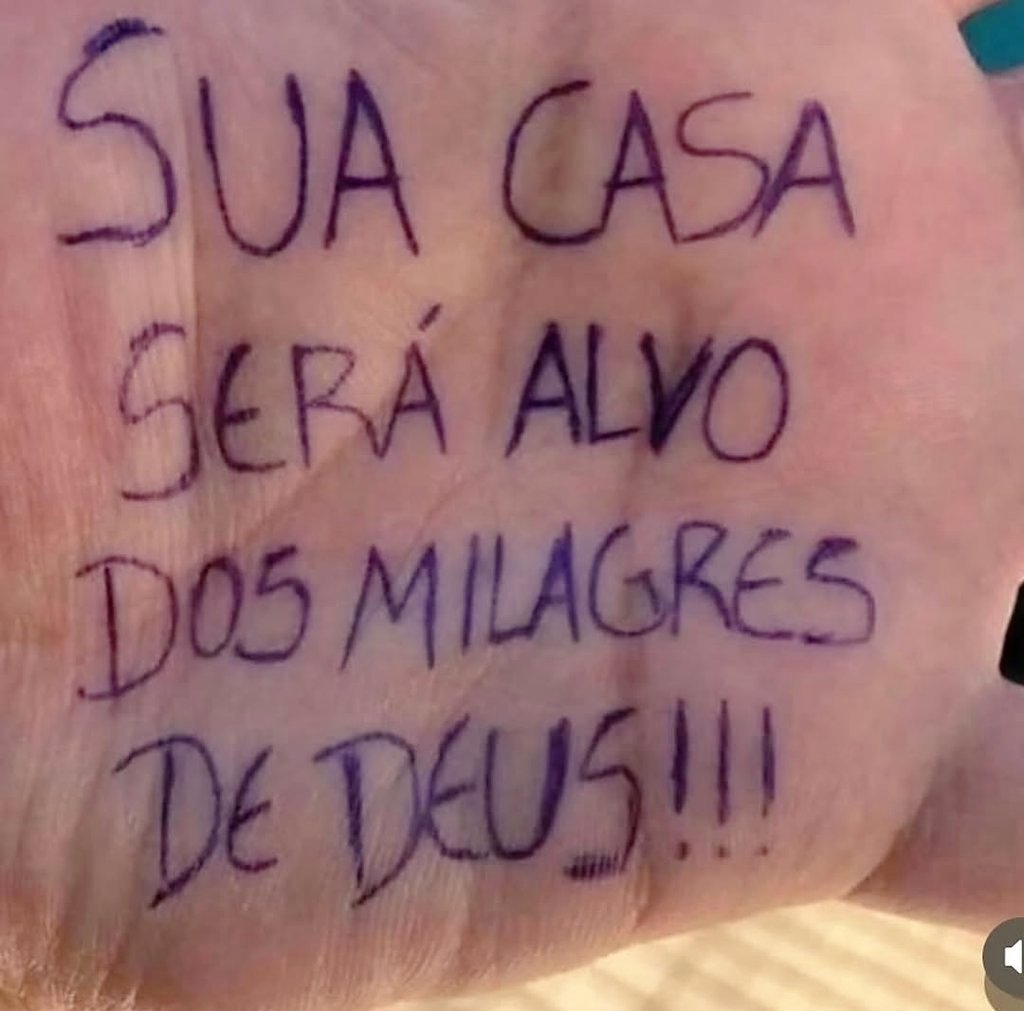 SUA CASA
SERÁ ALVO
DOS MILAGRES
DE DEUS!!!